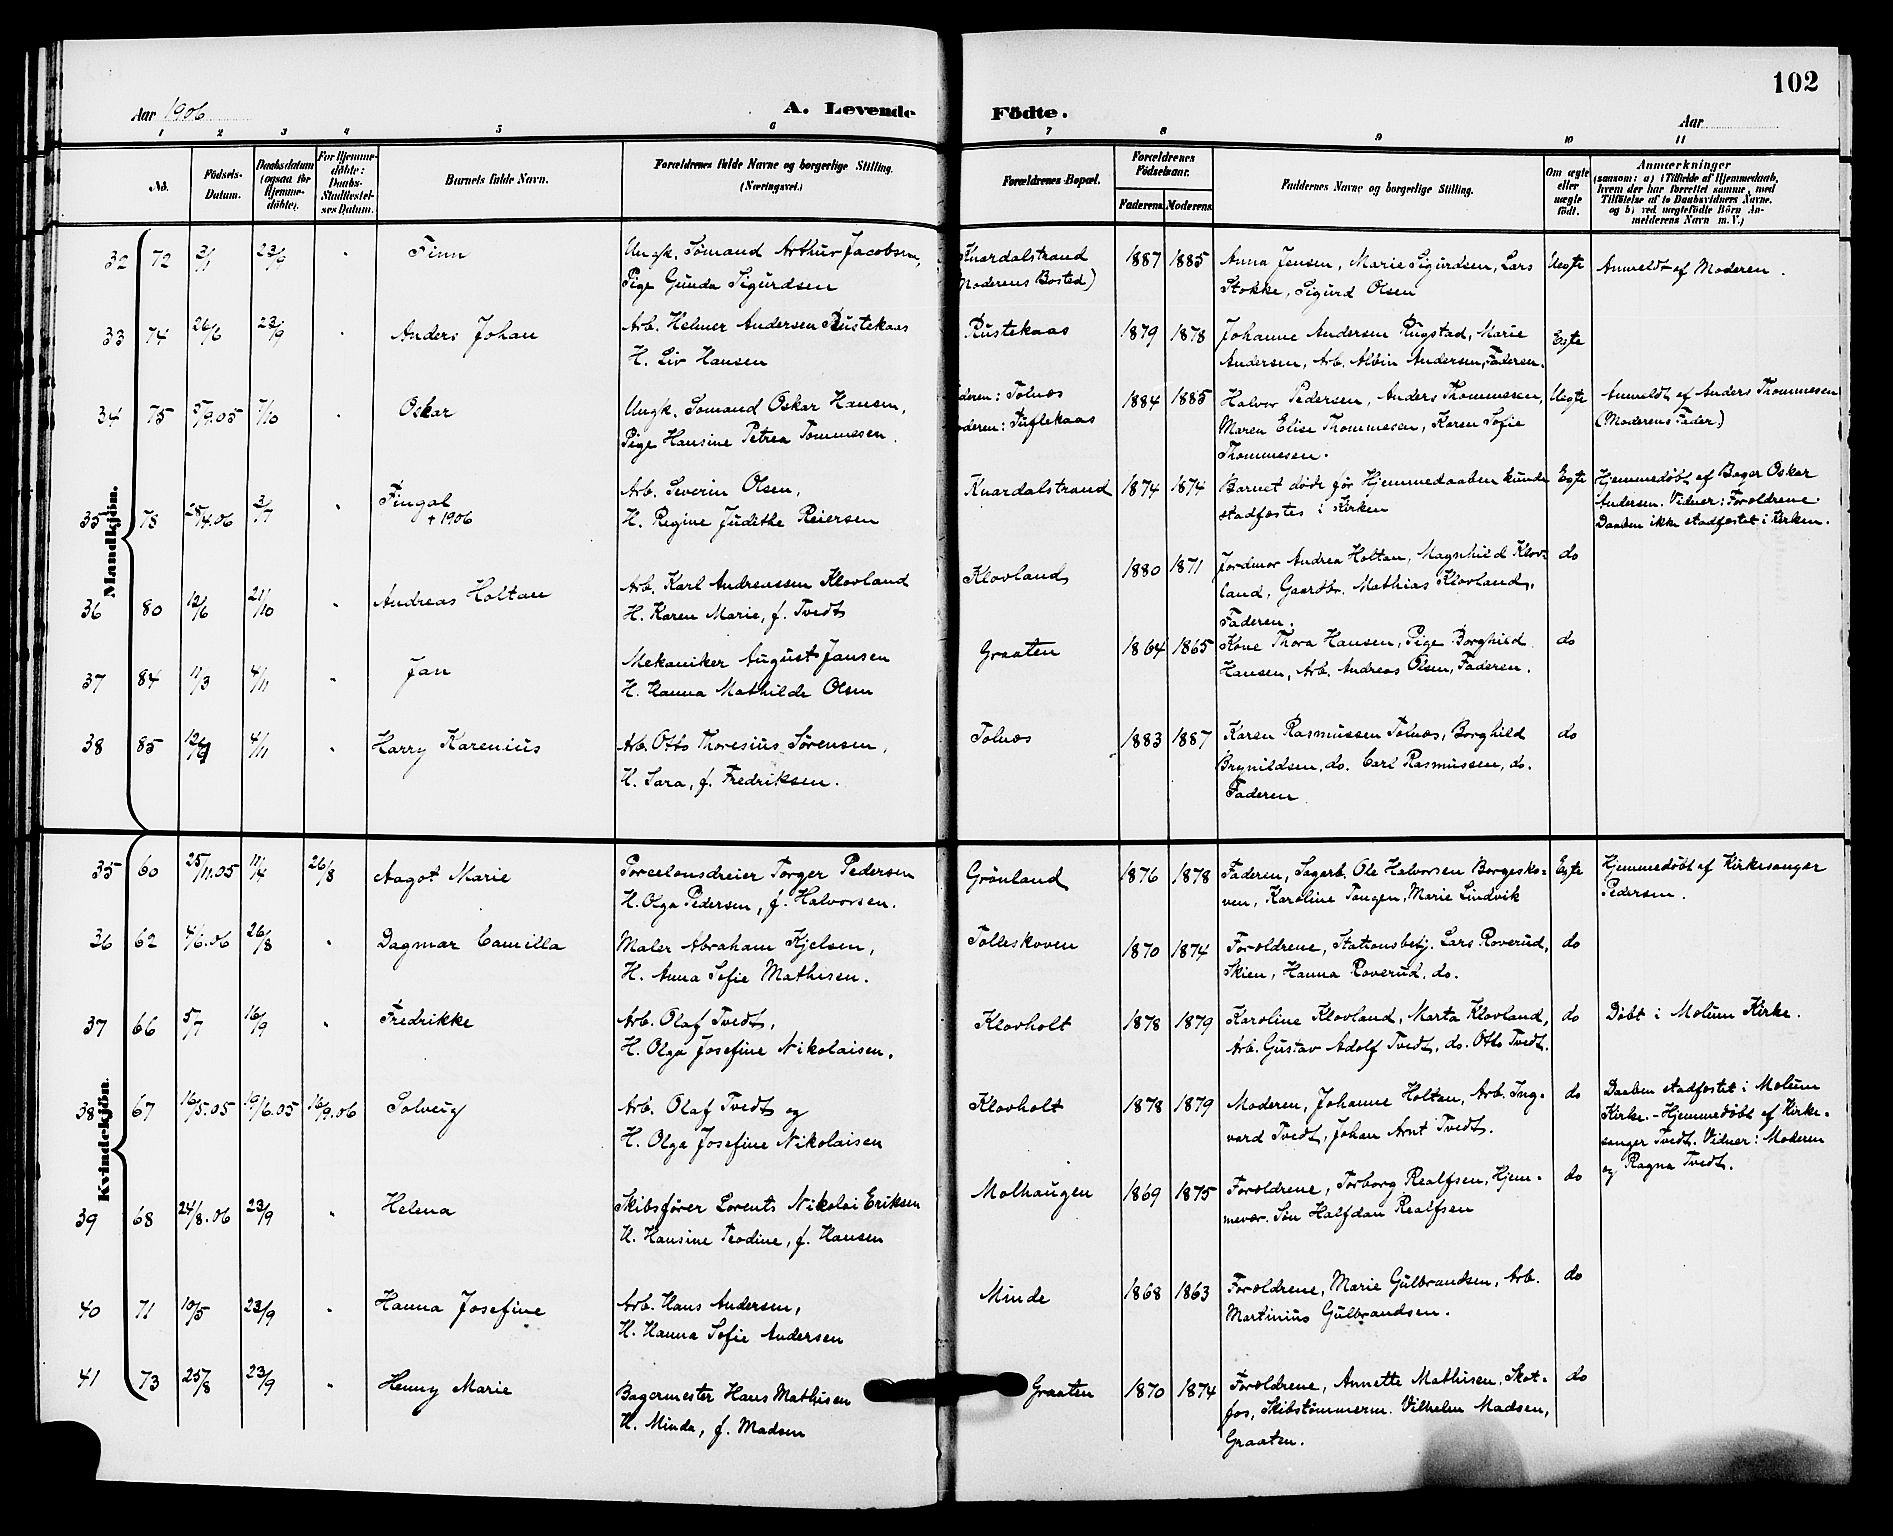 102
Aar 1906
A. Levende
Födte.
Aar
1 2 3 4 5 6 7 8 9 10 11
No.
Födsels-
Datum.
Daabsdatum
(ogsaa for
Hjemme-
döbte).
For Hjemme-
döbte:
Daabs-
Stadfæstel-
ses Datum.
Barnets fulde Navn.
Forældrenes fulde Navne og borgerlige Stilling.
(Næringsvei.)
Forældrenes Bopæl.
Forældrenes
Födselsaar.
Faderens
Moderens
Faddernes Navne og borgerlige Stilling.
Om ægte
eller
uægte
födt.
Anmærkninger
(saasom: a) i Tilfælde af Hjemmedaab,
hvem der har forrettet samme, med
Tilföielse af to Daabsvidners Navne,
og b) ved uægtefödte Börn An-
melderens Navn m. V.)
Mandkjön.
32 72 2/1 23/9 " Finn
Ungk. Sømand Arthur Jacobsen,
Pige Gunda Sigurdsen
Knardalstrand
Moderens Bosted)
1887 1885
Anna Jensen, Marie Sigurdsen, Lars
Stokke, Sigurd Olsen
Uegte
Anmeldt af Moderen.
33 74 26/6 23/9 " Anders Johan
Arb. Helmer Andersen Rustekaas
H. Liv Hansen
Rustekaas
1879 1878
Johanne Andersen Rugstad, Marie
Andersen, Arb. Albin Andersen, Faderen.
Egte
34 75 3/9.05 7/10 " Oskar
Ungk. Sømand Oskar Hansen,
Pige Hansine Petrea Tommesen.
deren: Tolnæs
oderen: Tuflekaas
1884 1885
Halvor Pedersen, Anders Thommesen,
Maren Elise Thommesen, Karen Sofie
Thommesen.
Uegte
Anmeldt af Anders Thommesen
(Moderens Fader)
35 78 28/4.06 2/7 " Fingal
+ 1906
Arb. Severin Olsen,
H. Regine Judithe Reiersen
Knardalstrand
1874 1874
Barnet døde før Hjemmedaaben kunde
stadfæstes i Kirken
Egte
Hjemmedøbt af Bager Oskar
Andersen. Vidner: Forældrene.
Daaben ikke stadfæstet i Kirken.
36 80 12/6 21/10 " Andreas Holtan
Arb. Karl Andreassen Klovland
H. Karen Marie, f. Tvedt
Klovland
1880 1871
Jordmor Andrea Holtan, Magnhild Klov-
land, Gaardbr. Mathias Klovland,
Faderen.
do
37 84 11/3 4/11 " Jan
Mekaniker August Jansen
H. Hanna Mathilde Olsen
Graaten
1864 1865
Kone Thora Hansen, Pige Borghild
Hansen, Arb. Andreas Olsen, Faderen.
do
38 85 12/9 4/11 " Harry Karenius
Arb. Otto Thoresius Sørensen,
H. Sara, f. Fredriksen.
Tolnæs
1883 1887
Karen Rasmussen Tolnæs, Borghild
Brynildsen, do. Carl Rasmussen, do.
Faderen
do
Kvindekjön.
35 60 25/11.05 11/4 26/8 Aagot Marie
Porcelænsdreier Torger Pedersen
H. Olga Pedersen, f. Halvorsen.
Grönland
1876 1878
Faderen, Sagarb. Ole Halvorsen Borgesko-
ven, Karoline Tangen, Marie Lindvik
Egte
Hjemmedøbt af Kirkesanger
Pedersen.
36 62 4/6.06 26/8 " Dagmar Camilla
Maler Abraham Kjelsen,
H. Anna Sofie Mathisen.
Tolleskoven
1870 1874
Forældrene, Stationsbetj. Lars Roverud,
Skien, Hanna Roverud, do.
do
37 66 5/7 16/9 " Fredrikke
Arb. Olaf Tvedt,
H. Olga Josefine Nikolaisen.
Klovholt
1878 1879
Karoline Klovland, Marta Klovland,
Arb. Gustav Adolf Tvedt, do. Otto Tvedt.
do
Døbt i Molum Kirke.
38 67 16/5.05 19/6.05 16/9.06 Solveig
Arb. Olaf Tvedt og
H. Olga Josefine Nikolaisen
Klovholt
1878 1879
Moderen, Johanne Holtan, Arb. Ing-
vard Tvedt, Johan Arnt Tvedt.
do
Daaben stadfæstet i Molum
Kirke. - Hjemmedøbt af Kirke-
sanger Tvedt. Vidner: Moderen
og Ragna Tvedt.
39 68 24/8.06 23/9 " Helena
Skibsfører Lorents Nikolai Eriksen
H. Hansine Teodine, f. Hansen
Molhaugen
1869 1875
Forældrene, Torborg Realfsen, Hjem-
mevær. Søn Halfdan Realfsen
do
40 71 10/5 23/9 " Hanna Josefine
Arb. Hans Andersen,
H. Hanna Sofie Andersen
Minde
1868 1863
Forældrene, Marie Gulbrandsen, Arb.
Martinius Gulbrandsen.
do
41 73 25/8 23/9 " Henny Marie
Bagermester Hans Mathisen
H. Minda, f. Madsen
Graaten
1870 1874
Forældrene, Annette Mathisen, Skot-
fos, Skibstømmerm. Vilhelm Madsen,
Graaten.
do